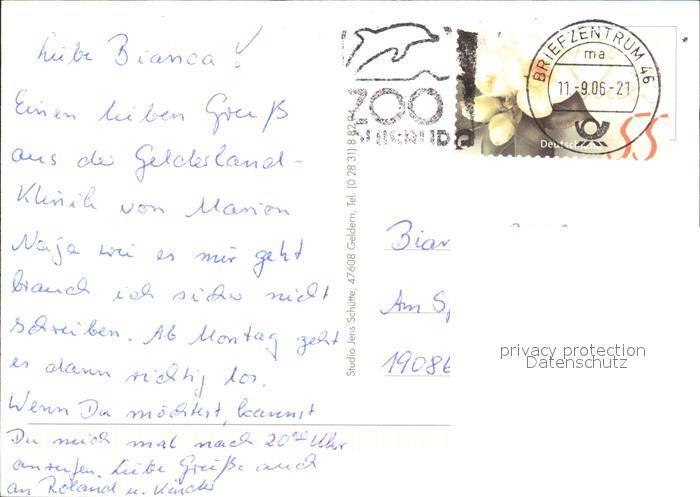 Liebe Bianca!
Einen lieben Gruß
aus der Gelderland-
Klinik von Marion
Naja wie es mir geht
brauch ich sicher nicht
schreiben. Ab Montag geht
es dann richtig los.
Wenn Du möchtest, kannst
Du mich mal nach 20⁰⁰ Uhr
anrufen. Liebe Grüße auch
an Roland u. Kinder
Studio Jens Schütte, 47608 Geldern, Tel. (0 28 31) 8 82 04
ZOO
BRIEFZENTRUM 46
ma
11.-9.06-21
55
Bian
Am Sp
19086
privacy protection
Datenschutz